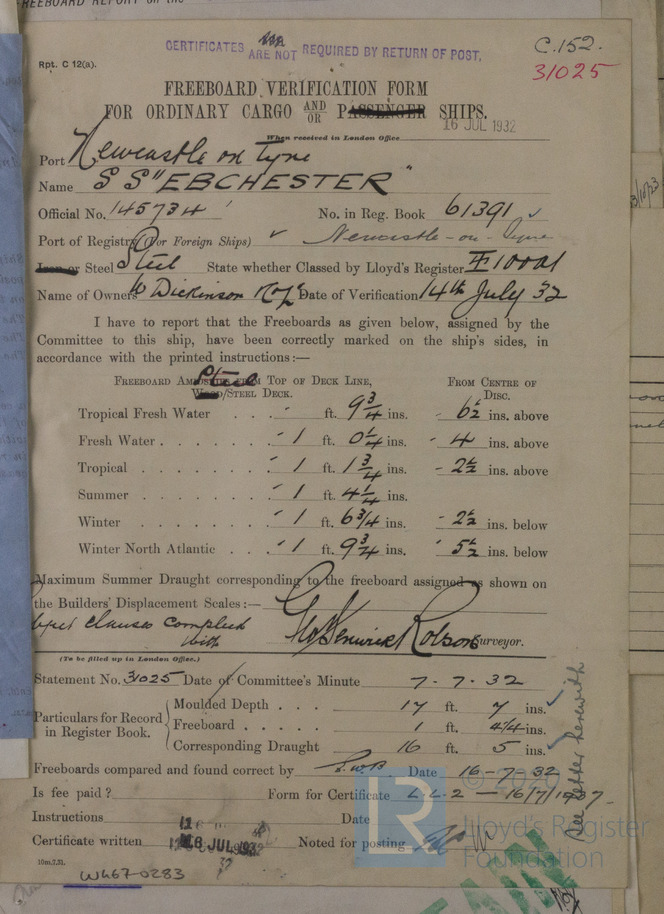 FREEBOARD REPORT on the
CERTIFICATES ARE NOT REQUIRED BY RETURN OF POST.
C.152.
31025
Rpt. C 12(a).
FREEBOARD VERIFICATION FORM
FOR ORDINARY CARGO AND OR PASSENGER SHIPS.
16 JUL 1932
When received in London Office
Port Newcastle on Tyne
Name SS "EBCHESTER"
Official No. 145734 No. in Reg. Book 61391
Port of Registry (For Foreign Ships) Newcastle-on-Tyne
Iron or Steel Steel State whether Classed by Lloyd's Register 100A1
Name of Owners W Dickinson Date of Verification 14th July 32
I have to report that the Freeboards as given below, assigned by the
Committee to this ship, have been correctly marked on the ship's sides, in
accordance with the printed instructions:—
Steel
FREEBOARD AMOUNTING FROM TOP OF DECK LINE, FROM CENTRE OF
WOOD/STEEL DECK. DISC.
Tropical Fresh Water . . - ft. 9 3/4 ins. - 6 1/2 ins. above
Fresh Water . . . . . . - 1 ft. 0 1/4 ins. - 4 ins. above
Tropical . . . . . . . - 1 ft. 1 3/4 ins. - 2 1/2 ins. above
Summer . . . . . . . - 1 ft. 4 1/4 ins.
Winter . . . . . . . - 1 ft. 6 3/4 ins. - 2 1/2 ins. below
Winter North Atlantic . . . - 1 ft. 9 3/4 ins. - 5 1/2 ins. below
Maximum Summer Draught corresponding to the freeboard assigned as shown on
the Builders' Displacement Scales:—
clauses complied
with
Fenwick Robson Surveyor.
(To be filled up in London Office.)
Statement No. 31025 Date of Committee's Minute 7-7-32
Particulars for Record in Register Book.
Moulded Depth . . . 17 ft. 7 ins.
Freeboard . . . . 1 ft. 4 1/4 ins.
Corresponding Draught 16 ft. 5 ins.
See letter herewith
Freeboards compared and found correct by Date 16-7-32
Is fee paid? Form for Certificate L.L.2 — 16/7/
Instructions Date
Certificate written 18 JUL 1932 Noted for posting
10m,7,31.
W467-0283
© 2020
LR
Lloyd's Register
Foundation